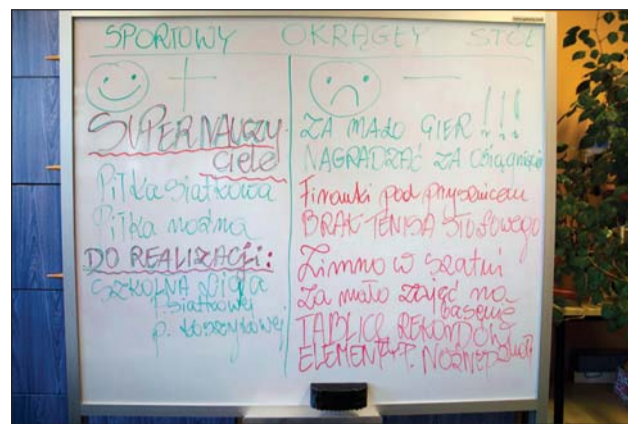 SPORTOWY OKRĄGŁY STÓŁ
+
SUPER NAUCZY-
ciele
Piłka siatkowa
Piłka nożna
DO REALIZACJI:
SZKOLNA LIGA
p. siatkowej
p. koszykowej
—
ZA MAŁO GIER !!!
NAGRADZAĆ ZA OSiągnięcia
Firanki pod prysznicem
BRAK TENISA STOŁOWEGO
Zimno w szatni
Za mało zajęć na
basenie
TABLICE REKORDÓW
ELEMENTY P. NOŻNEJ